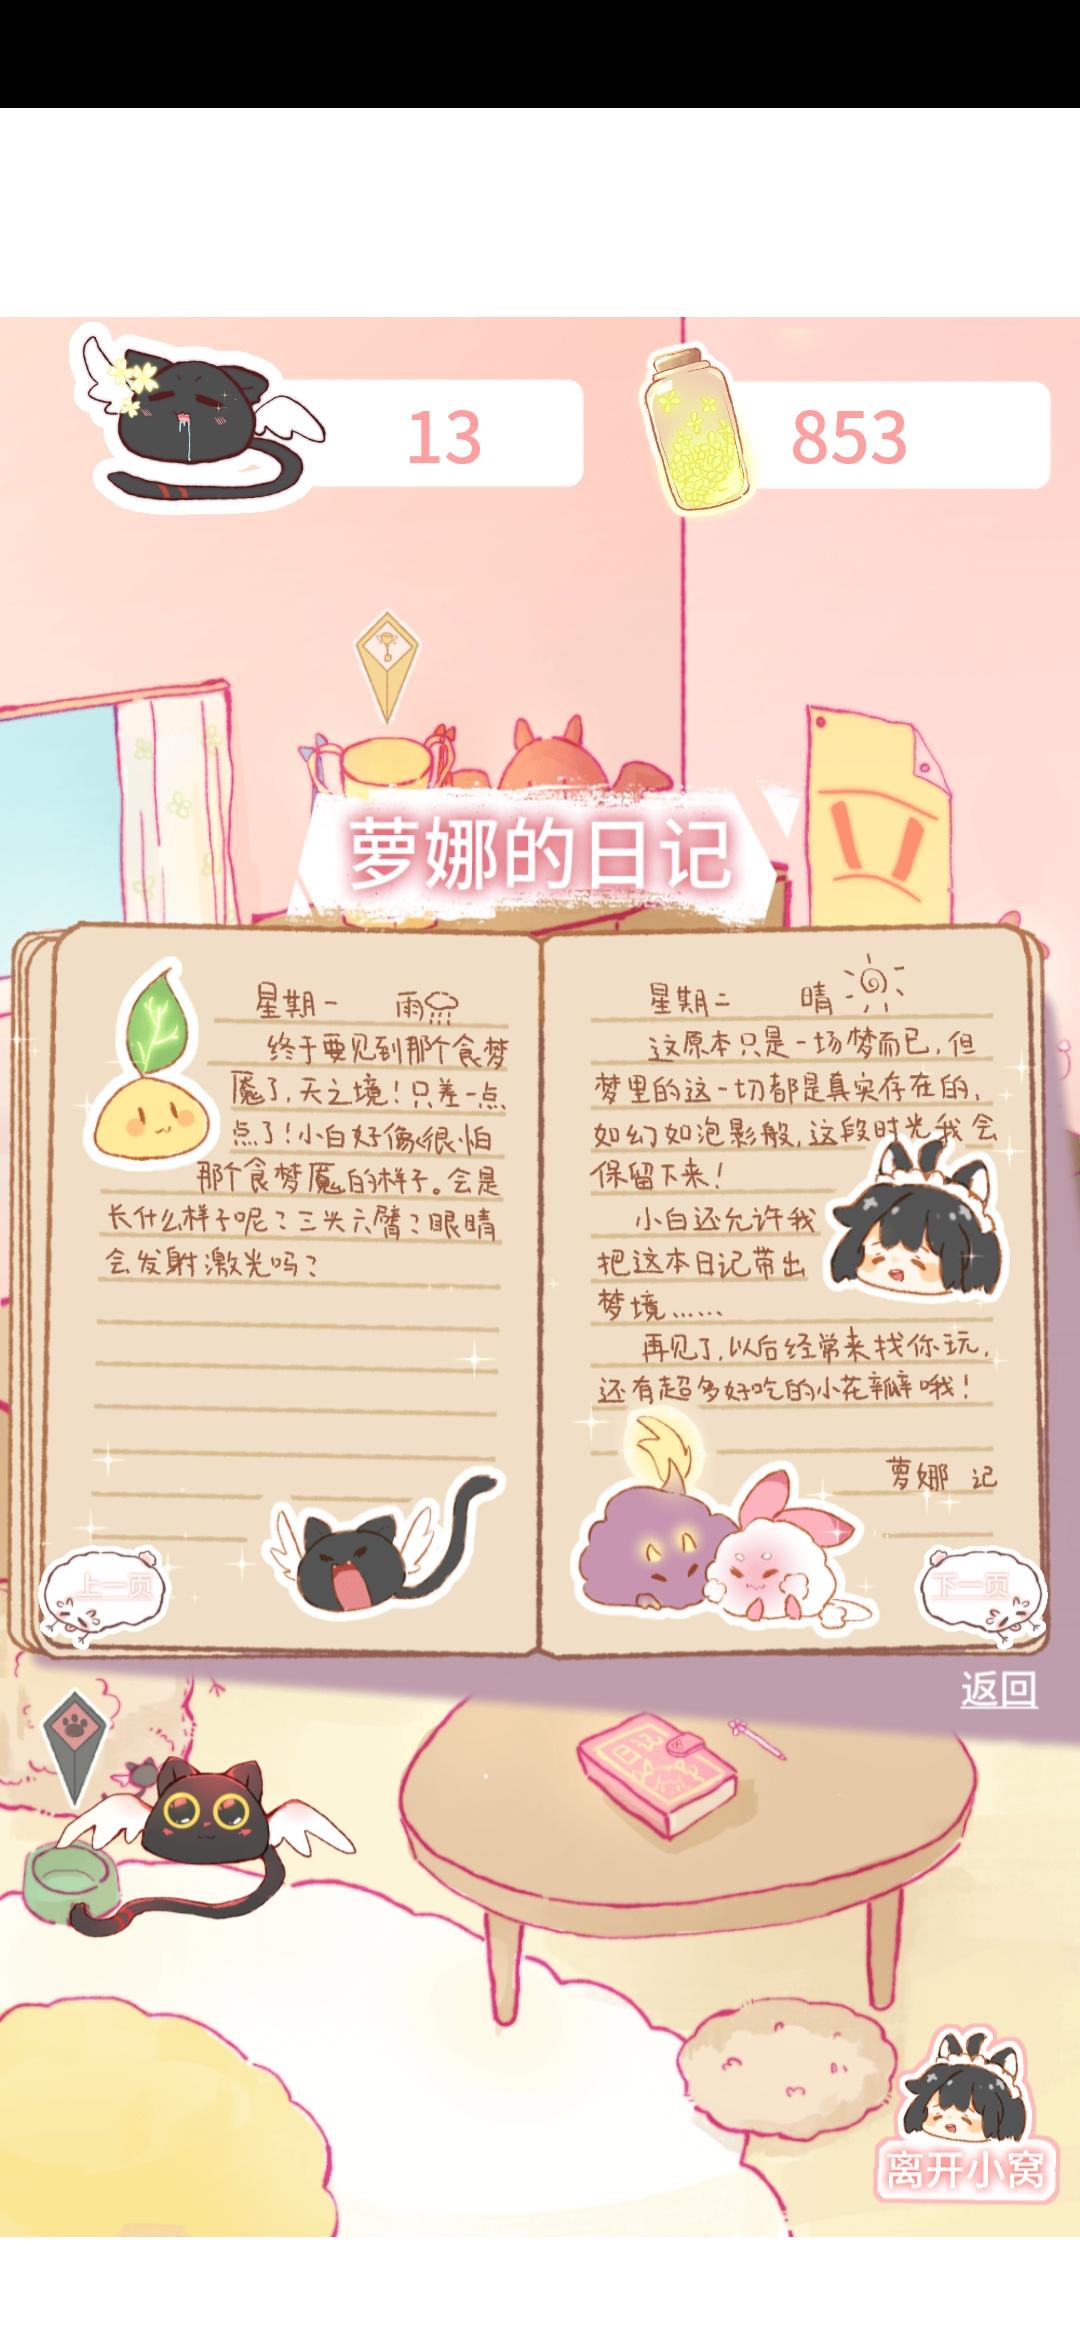 13
853
萝娜的日记
星期一 雨
终于要见到那个食梦
魇了,天之境!只差一点
点了!小白好像很怕
那个食梦魇的样子。会是
长什么样子呢?三头六臂?眼睛
会发射激光吗?
上一页
星期二 晴
这原本只是一场梦而已,但
梦里的这一切都是真实存在的,
如幻如泡影般,这段时光我会
保留下来!
小白还允许我
把这本日记带出
梦境......
再见了,以后经常来找你玩,
还有超多好吃的小花瓣哦!
萝娜 记
下一页
返回
日记
离开小窝